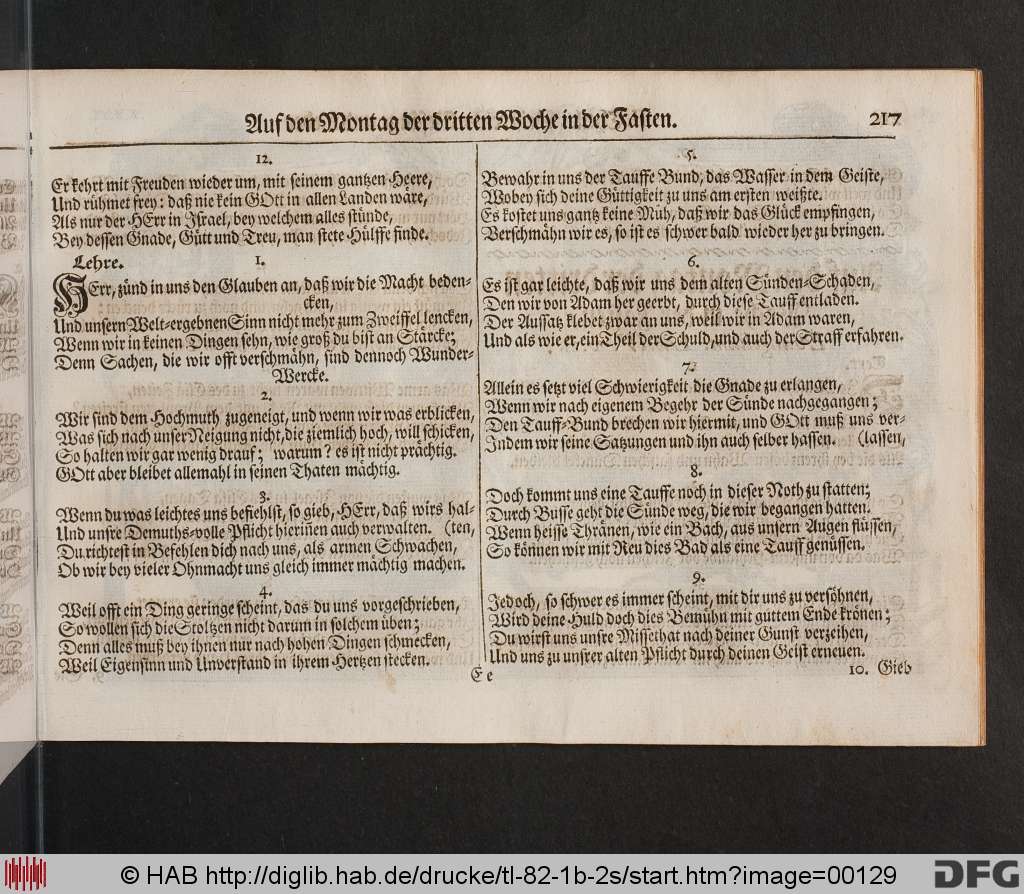 Auf den Montag der dritten Woche in der Fasten. 217
12.
Er kehrt mit Freuden wieder um, mit seinem gantzen Heere,
Und rühmet frey: daß nie kein GOtt in allen Landen wäre,
Als nur der HErr in Israel, bey welchem alles stünde,
Bey dessen Gnade, Gütt und Treu, man stete Hülffe finde.
Lehre. 1.
HErr, zünd in uns den Glauben an, daß wir die Macht beden-
cken,
Und unsern Welt-ergebnen Sinn nicht mehr zum Zweiffel lencken,
Wenn wir in keinen Dingen sehn, wie groß du bist an Stärcke;
Denn Sachen, die wir offt verschmähn, sind dennoch Wunder-
Wercke.
2.
Wir sind dem Hochmuth zugeneigt, und wenn wir was erblicken,
Was sich nach unser Neigung nicht, die ziemlich hoch, will schicken,
So halten wir gar wenig drauf; warum? es ist nicht prächtig.
GOtt aber bleibet allemahl in seinen Thaten mächtig.
3.
Wenn du was leichtes uns befiehlst, so gieb, HErr, daß wirs hal-
Und unsre Demuths-volle Pflicht hierinen auch verwalten. (ten,
Du richtest in Befehlen dich nach uns, als armen Schwachen,
Ob wir bey vieler Ohnmacht uns gleich immer mächtig machen.
4.
Weil offt ein Ding geringe scheint, das du uns vorgeschrieben,
So wollen sich die Stoltzen nicht darum in solchem üben;
Denn alles muß bey ihnen nur nach hohen Dingen schmecken,
Weil Eigensinn und Unverstand in ihrem Hertzen stecken.
5.
Bewahr in uns der Tauffe Bund, das Wasser in dem Geiste,
Wobey sich deine Güttigkeit zu uns am ersten weißte.
Es kostet uns gantz keine Müh, daß wir das Glück empfingen,
Verschmähn wir es, so ist es schwer bald wieder her zu bringen.
6.
Es ist gar leichte, daß wir uns dem alten Sünden-Schaden,
Den wir von Adam her geerbt, durch diese Tauff entladen.
Der Aussatz klebet zwar an uns, weil wir in Adam waren,
Und als wie er, ein Theil der Schuld, und auch der Straff erfahren.
7.
Allein es setzt viel Schwierigkeit die Gnade zu erlangen,
Wenn wir nach eigenem Begehr der Sünde nachgegangen;
Den Tauff-Bund brechen wir hiermit, und GOtt muß uns ver-
Indem wir seine Satzungen und ihn auch selber hassen. (lassen,
8.
Doch kommt uns eine Tauffe noch in dieser Noth zu statten;
Durch Busse geht die Sünde weg, die wir begangen hatten.
Wenn heisse Thränen, wie ein Bach, aus unsern Augen flüssen,
So können wir mit Reu dies Bad als eine Tauff genüssen.
9.
Jedoch, so schwer es immer scheint, mit dir uns zu versöhnen,
Wird deine Huld doch dies Bemühn mit guttem Ende krönen;
Du wirst uns unsre Missethat nach deiner Gunst verzeihen,
Und uns zu unsrer alten Pflicht durch deinen Geist erneuen.
E e
10. Gieb
© HAB http://diglib.hab.de/drucke/tl-82-1b-2s/start.htm?image=00129
DFG